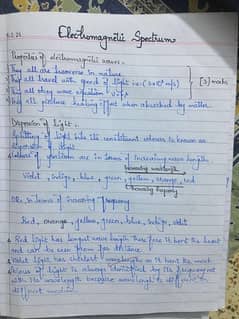 Electromagnetic Spectrum
Properties of electromagnetic waves.
They all are transverse in nature
They all travel with speed of light i.e. (3x10⁸ m/s) [3] marks
They all obey wave equation
They all produce heating effect when absorbed by matter.
Dispersion of light
Splitting of light into its constituent colours is known as
dispersion of light
Colours of spectrum are in terms of increasing wave length
increasing wavelength
Violet, indigo, blue, green, yellow, orange, red
decreasing frequency
OR. In terms of increasing frequency
Red, orange, yellow, green, blue, indigo, violet
Red light has longest wave length therefore it bent the least
and can be seen from far distance
Violet light has shortest wavelength so it bent the most
Colour of light is always identified by its frequency
not its wavelength because wavelength is different in
different medium